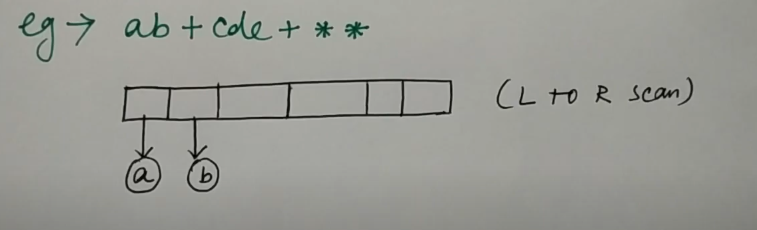 eg → ab + cde + * *
(L to R scan)
a b